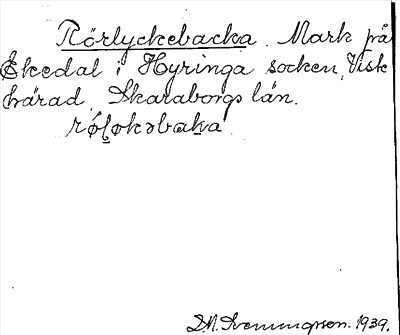 Rörlyckebacka. Mark på
Ekedal i Hyringa socken, Viste
härad, Skaraborgs län.
D.N. Svenungsson. 1939.